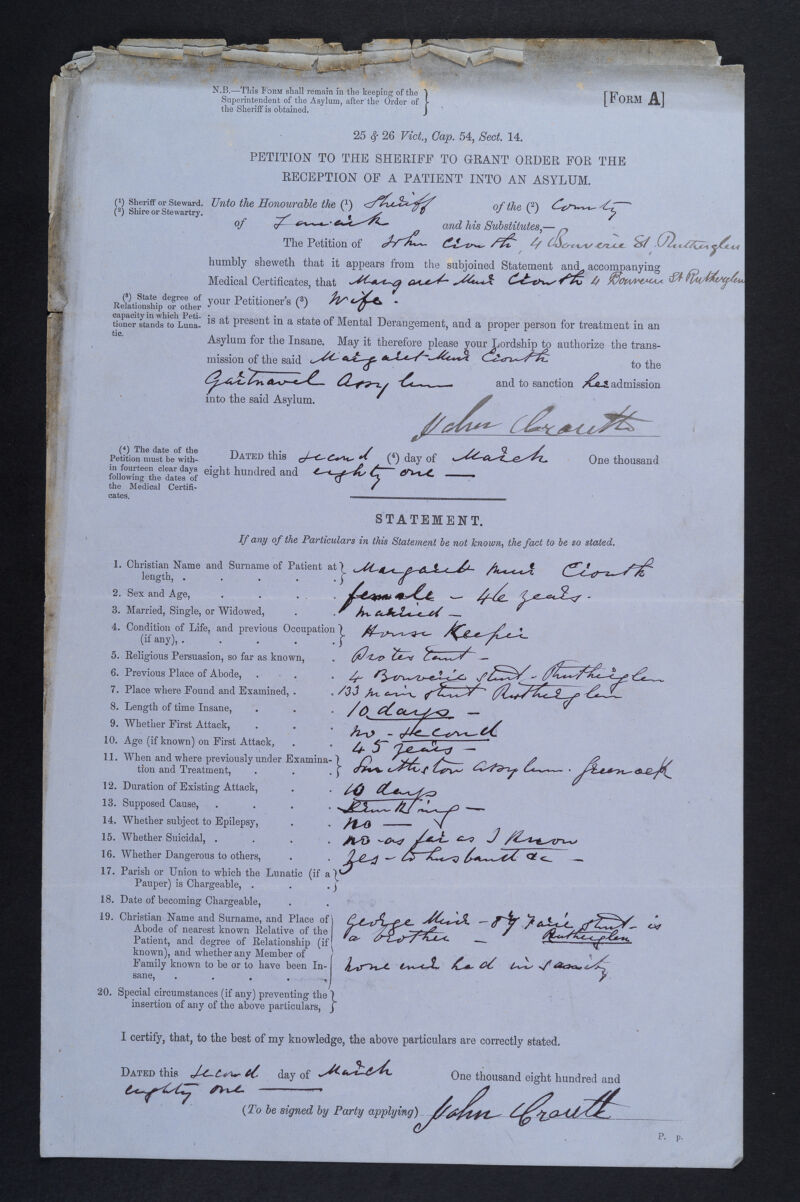 N.B.—This Form shall remain in the keeping of the
Superintendent of the Asylum, after the Order of
the Sheriff is obtained.
[Form A]
25 & 26 Vict., Cap. 54, Sect. 14.
PETITION TO THE SHERIFF TO GRANT ORDER FOR THE
RECEPTION OF A PATIENT INTO AN ASYLUM.
(1) Sheriff or Steward.
(2) Shire or Stewartry.
Unto the Honourable the (1) Sheriff of the (2) County
of Lanark and his Substitutes,—
The Petition of John 4 Bouverie St, Rutherglen
humbly sheweth that it appears from the subjoined Statement and accompanying
Medical Certificates, that Margaret Muir 4 Bouverie St Rutherglen
(3) State degree of
Relationship or other
capacity in which Peti-
tioner stands to Luna-
tic.
your Petitioner's (3) Wife.
is at present in a state of Mental Derangement, and a proper person for treatment in an
Asylum for the Insane. May it therefore please your Lordship to authorize the trans-
mission of the said Margaret Muir to the
Gartnavel Assylum and to sanction her admission
into the said Asylum.
John
(4) The date of the
Petition must be with-
in fourteen clear days
following the dates of
the Medical Certifi-
cates.
Dated this second (4) day of March One thousand
eight hundred and eighty one —
STATEMENT.
If any of the Particulars in this Statement be not known, the fact to be so stated.
1. Christian Name and Surname of Patient at
length, . Margaret Muir
2. Sex and Age, female - 46 years.
3. Married, Single, or Widowed, married -
4. Condition of Life, and previous Occupation
(if any), . House Keeper
5. Religious Persuasion, so far as known, Protestant -
6. Previous Place of Abode, 4 Bouverie street - Rutherglen
7. Place where Found and Examined, 133 main street Rutherglen
8. Length of time Insane, 10 days -
9. Whether First Attack, no - second
10. Age (if known) on First Attack, 45 years -
11. When and where previously under Examina-
tion and Treatment, Smithston Assylum. Greenock
12. Duration of Existing Attack, 10 days
13. Supposed Cause, Drinking -
14. Whether subject to Epilepsy, no —
15. Whether Suicidal, no - as far as I know
16. Whether Dangerous to others, yes - to husband &c -
17. Parish or Union to which the Lunatic (if a
Pauper) is Chargeable,
18. Date of becoming Chargeable,
19. Christian Name and Surname, and Place of
Abode of nearest known Relative of the
Patient, and degree of Relationship (if
known), and whether any Member of
Family known to be or to have been In-
sane,
George Muir - street - is
a brother - Rutherglen
none ever had insanity
20. Special circumstances (if any) preventing the
insertion of any of the above particulars,
I certify, that, to the best of my knowledge, the above particulars are correctly stated.
Dated this second day of March One thousand eight hundred and
eighty one —
(To be signed by Party applying) John
P. p.